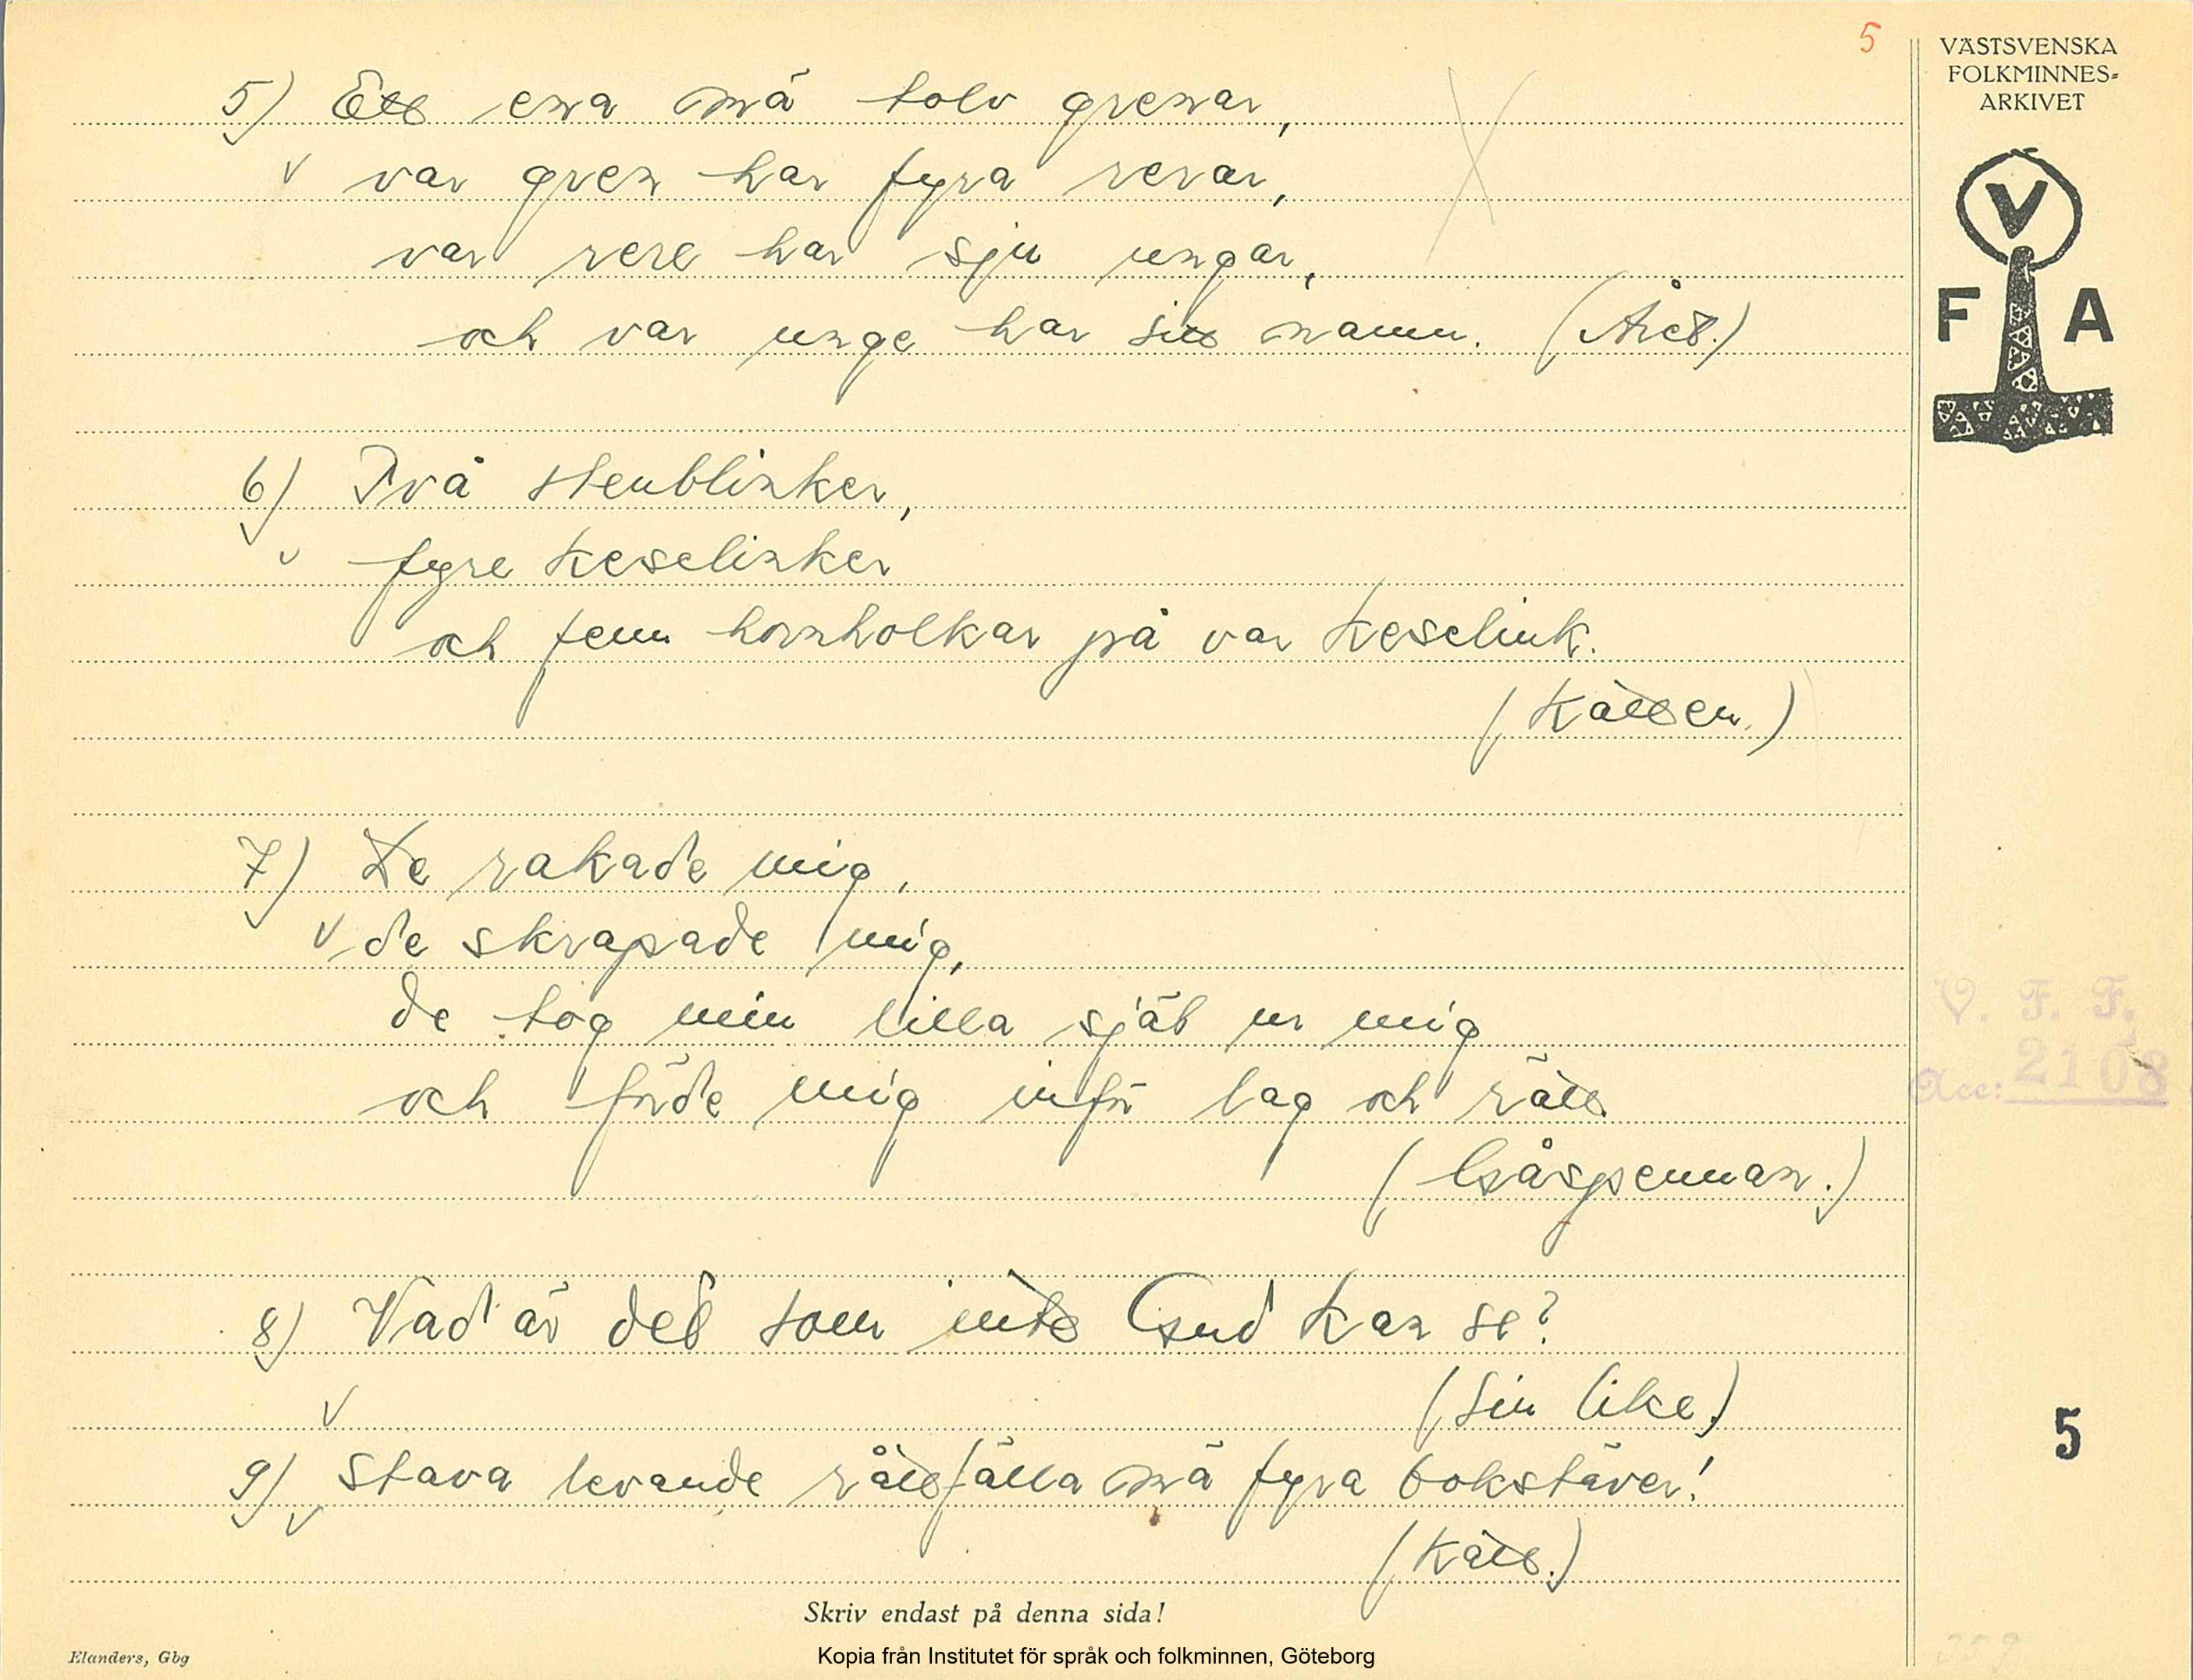 5
VÄSTSVENSKA
FOLKMINNES-
ARKIVET
V
F A
5) Ett ena mä tolv grenar,
v var gren har fyra rerar,
var rere har sju ungar,
och var unge har sitt namn. (Året.)
6) Två stenblinker,
v fyre keselinker
och fem hornholkar på var keselink.
(Katten.)
7) De rakade mig,
v de skrapade mig,
de tog min lilla själ ur mig
och förde mig inför lag och rätt.
(Gåspennan.)
8) Vad är det som inte Gud kan se?
v (Sin like.)
9) Stava levande råttfälla mä fyra bokstäver!
v (Katt.)
V. F. F.
Acc: 2108
5
Skriv endast på denna sida!
Elanders, Gbg
Kopia från Institutet för språk och folkminnen, Göteborg